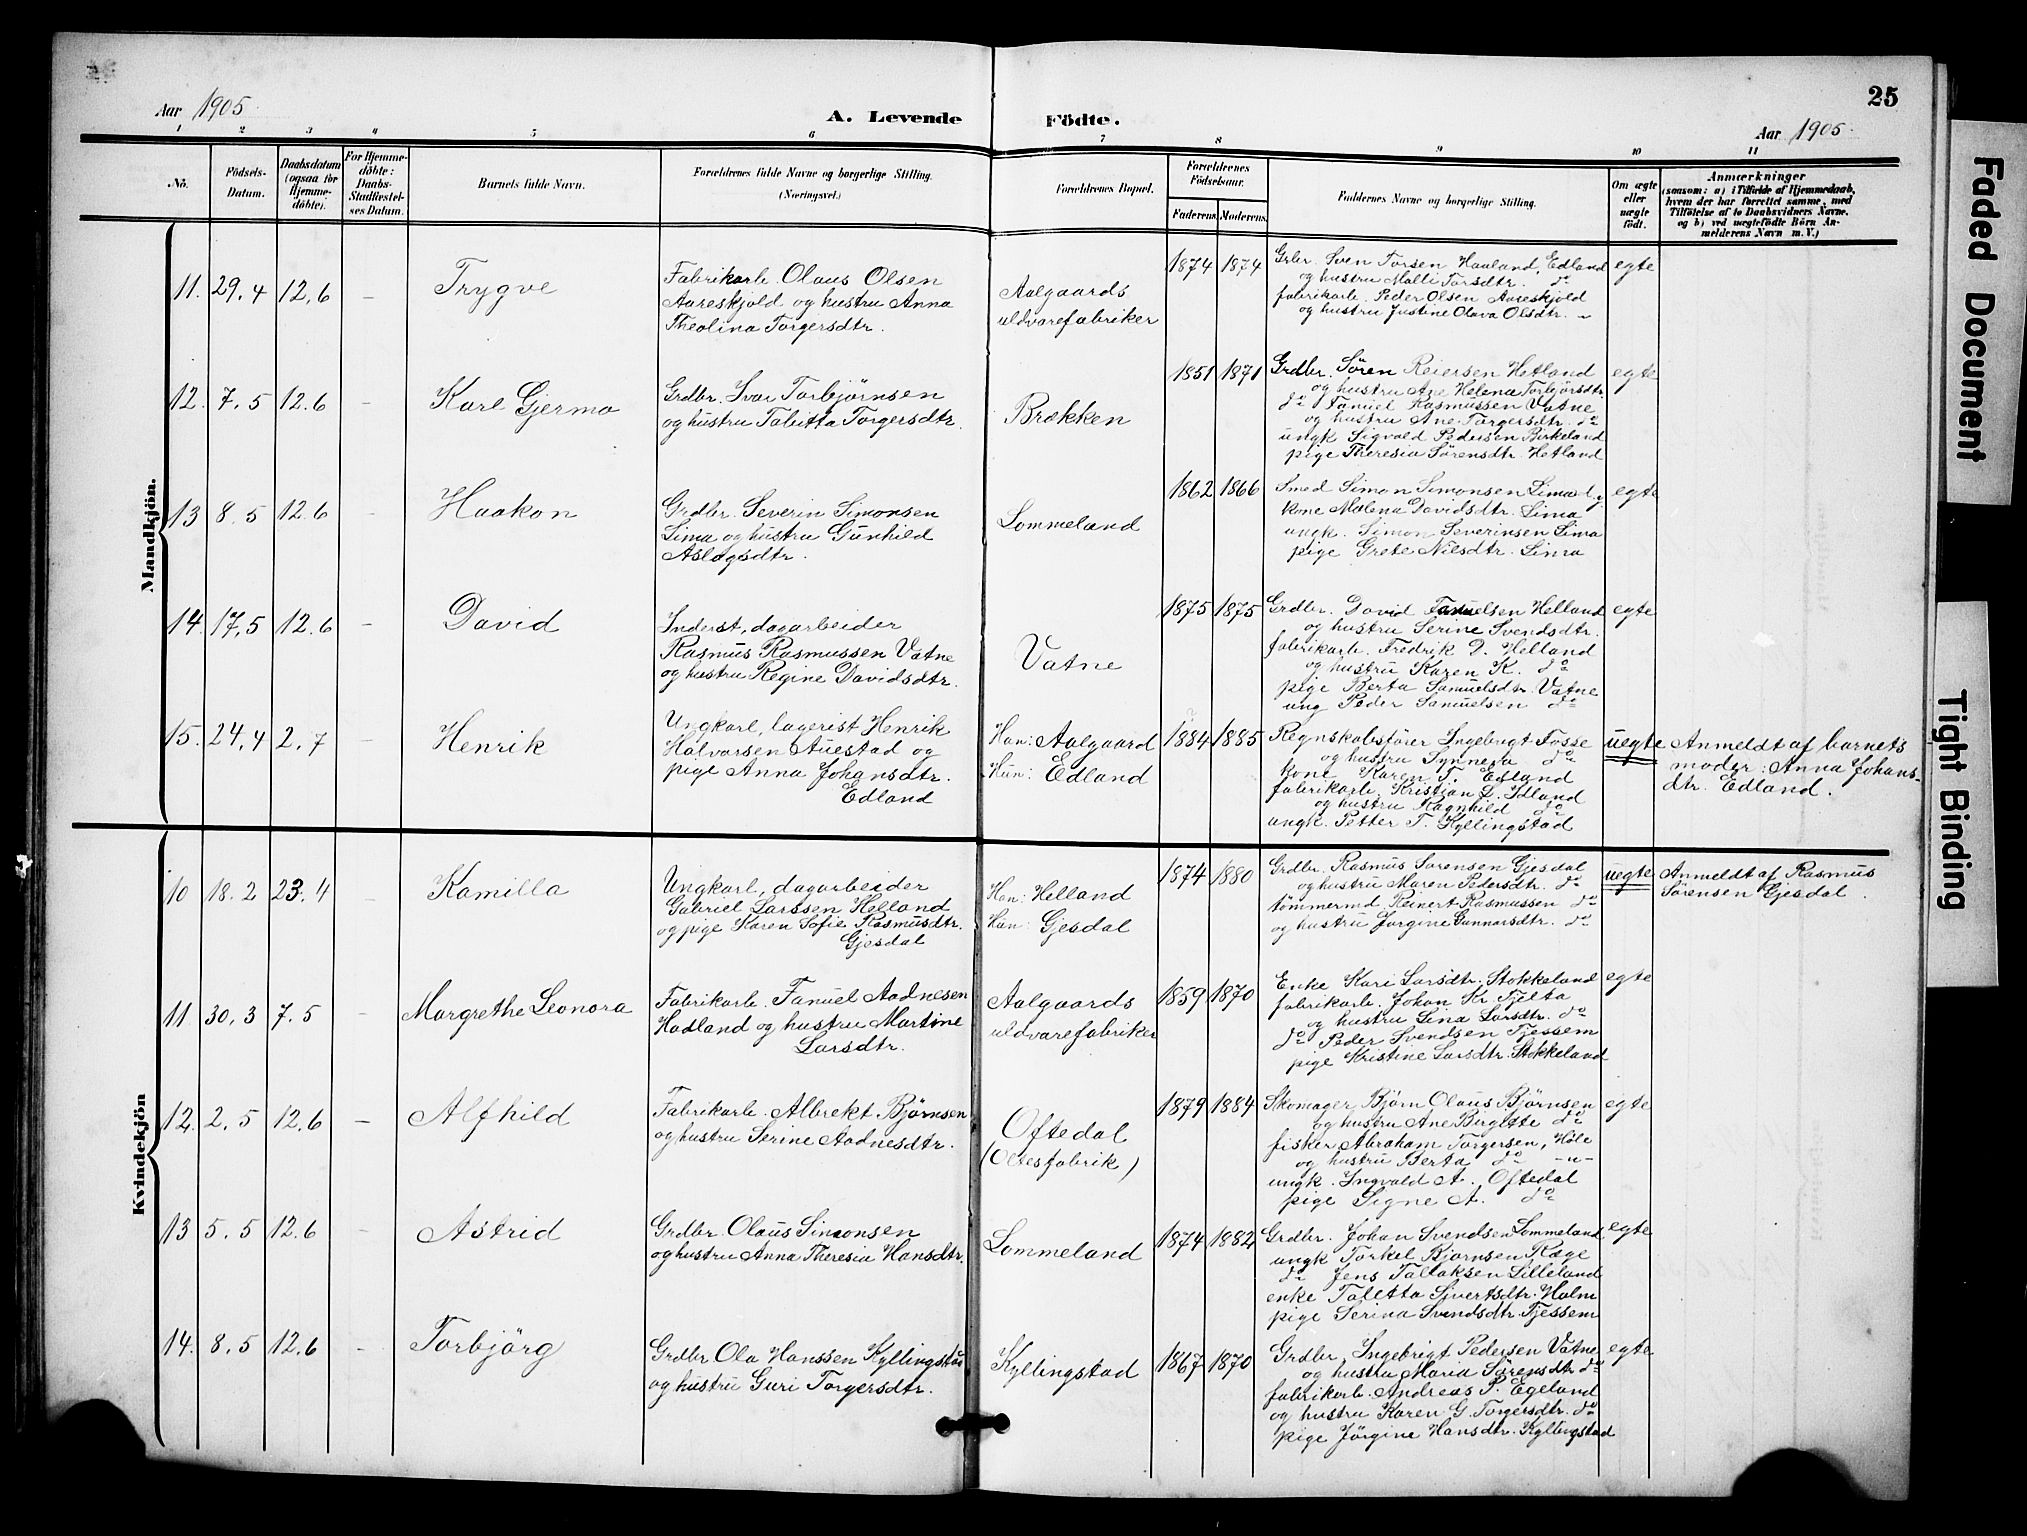 Aar 1905
A. Levende
Födte.
25
Aar 1905.
1 2 3 4 5 6 7 8 9 10 11
No.
Födsels-
Datum.
Daabsdatum
(ogsaa for
Hjemme-
döbte).
For Hjemme-
döbte:
Daabs-
Stadfæstel-
ses Datum.
Barnets fulde Navn.
Forældrenes fulde Navne og borgerlige Stilling.
(Næringsvei.)
Forældrenes Bopæl.
Forældrenes
Födselsaar.
Faderens.
Moderens.
Faddernes Navne og borgerlige Stilling.
Om ægte
eller
uægte
födt.
Anmærkninger
(saasom: a) i Tilfælde af Hjemmedaab,
hvem der har forrettet samme, med
Tilföielse af to Daabsvidners Navne.
og b) ved uægtefödte Börn An-
melderens Navn m. V.)
Mandkjön.
11.
29.4
12.6
–
Trygve
Fabrikarb. Olaus Olsen
Aareskjold og hustru Anna
Theolina Torgersdtr.
Aalgaards
uldvarefabriker
1874
1874
Grbr. Sven Torsen Haaland, Edland
og hustru Malli Torsdtr. do
fabrikarb. Peder Olsen Aareskjold
og hustru Justine Olava Olsdtr. „
egte
12.
7.5
12.6
–
Karl Gjermo
Grdbr. Ivar Torbjørnsen
og hustru Tabitta Torgersdtr.
Brækken
1851
1871
Grdbr. Søren Reiersen Hetland
og hustru Ane Helena Torbjørsdtr.
do Fanuel Rasmussen Vatne
og hustru Ane Torgersdtr. do
ungk Sigvald Pedersen Birkeland
pige Theresia Sørensdtr. Hetland
egte
13
8.5
12.6
–
Haakon
Grdbr. Severin Simonsen
Lima og hustru Gunhild
Aslagsdtr.
Lommeland
1862
1866
Smed Simon Simonsen
kone Malena Davidsdtr. Lima
ungk. Simon Severinsen Lima
pige Grete Nilsdtr. Lima
egte
14.
17.5
12.6
–
David
Inderst, dagarbeider
Rasmus Rasmussen Vatne
og hustru Regine Davidsdtr.
Vatne
1875
1875
Grdbr. David Fanuelsen Helland
og hustru Serine Svendsdtr.
fabrikarb. Fredrik D. Helland
og hustru Karen K. do
pige Berta Samuelsdtr. Vatne
ung Peder Samuelsen do
egte
15.
24.4
2.7
–
Henrik
Ungkarl, lagerist Henrik
Halvorsen Auestad og
pige Anna Johansdtr.
Edland
Han: Aalgaard
Hun: Edland
1884
1885
Regnskabsfører Ingebrigt Fosse
og hustru Synneva do
kone Karen T. Edland
fabrikarb. Kristian L. Idland
og hustru Magnhild do
ungk. Petter T. Kyllingstad
uegte
Anmeldt af barnets
moder: Anna Johans-
dtr. Edland.
Kvindekjön
10
18.2
23.4
–
Kamilla
Ungkarl, dagarbeider
Gabriel Larssen Helland
og pige Karen Sofie Rasmusdtr.
Gjesdal
Han: Helland
Hun: Gjesdal
1874
1880
Grdbr. Rasmus Sørensen Gjesdal
og hustru Maren Pedersdtr. do
tømmermd. Reinert Rasmussen do
og hustru Jorgine Gunnarsdtr. do
uegte
Anmeldt af Rasmus
Sørensen Gjesdal.
11
30.3
7.5
–
Margrethe Leonora
Fabrikarb. Fanuel Aadnesen
Hadland og hustru Martine
Larsdtr.
Aalgaards
uldvarefabriker
1859
1870
Enke Kari Larsdtr. Stokkeland
fabrikarb. Johan Kr Tjelta
og hustru Lina Larsdtr. do
do Peder Svendsen Tjessem
pige Kristine Larsdtr. Stokkeland
egte
12.
2.5
12.6
–
Alfhild
Fabrikarb. Albrekt Bjørnsen
og hustru Serine Aadnesdtr.
Oftedal
(Oltesfabrik)
1879
1884
Skomager Bjørn Olaus Bjørnsen
og hustru Ane Birgitte do
fisker Abraham Torgersen, Høle
og hustru Berta do –"–
ungk. Ingvald A. Oftedal
pige Signe A. do
egte
13
5.5
12.6
–
Astrid
Grdbr. Olaus Simonsen
og hustru Anna Theresia Hansdtr.
Lommeland
1874
1882
Grdbr. Johan Svendsen Lommeland
ungk Torkel Bjørnsen Ræge
do Jens Tallaksen Lilleland
enke Taletta Sivertsdtr. Holm
pige Serina Svendsdtr. Tjessem
egte
14.
8.5
12.6
–
Torbjörg
Grdbr. Ola Hanssen Kyllingstad
og hustru Guri Torgersdtr.
Kyllingstad
1867
1870
Grdbr. Ingebrigt Pedersen Vatne
og hustru Maria Sörensdtr do
fabrikarb. Andreas P. Egeland
og hustru Karen G. Torgersdtr. do
pige Jörgine Hansdtr. Kyllingstad
egte
Faded Document
Tight Binding